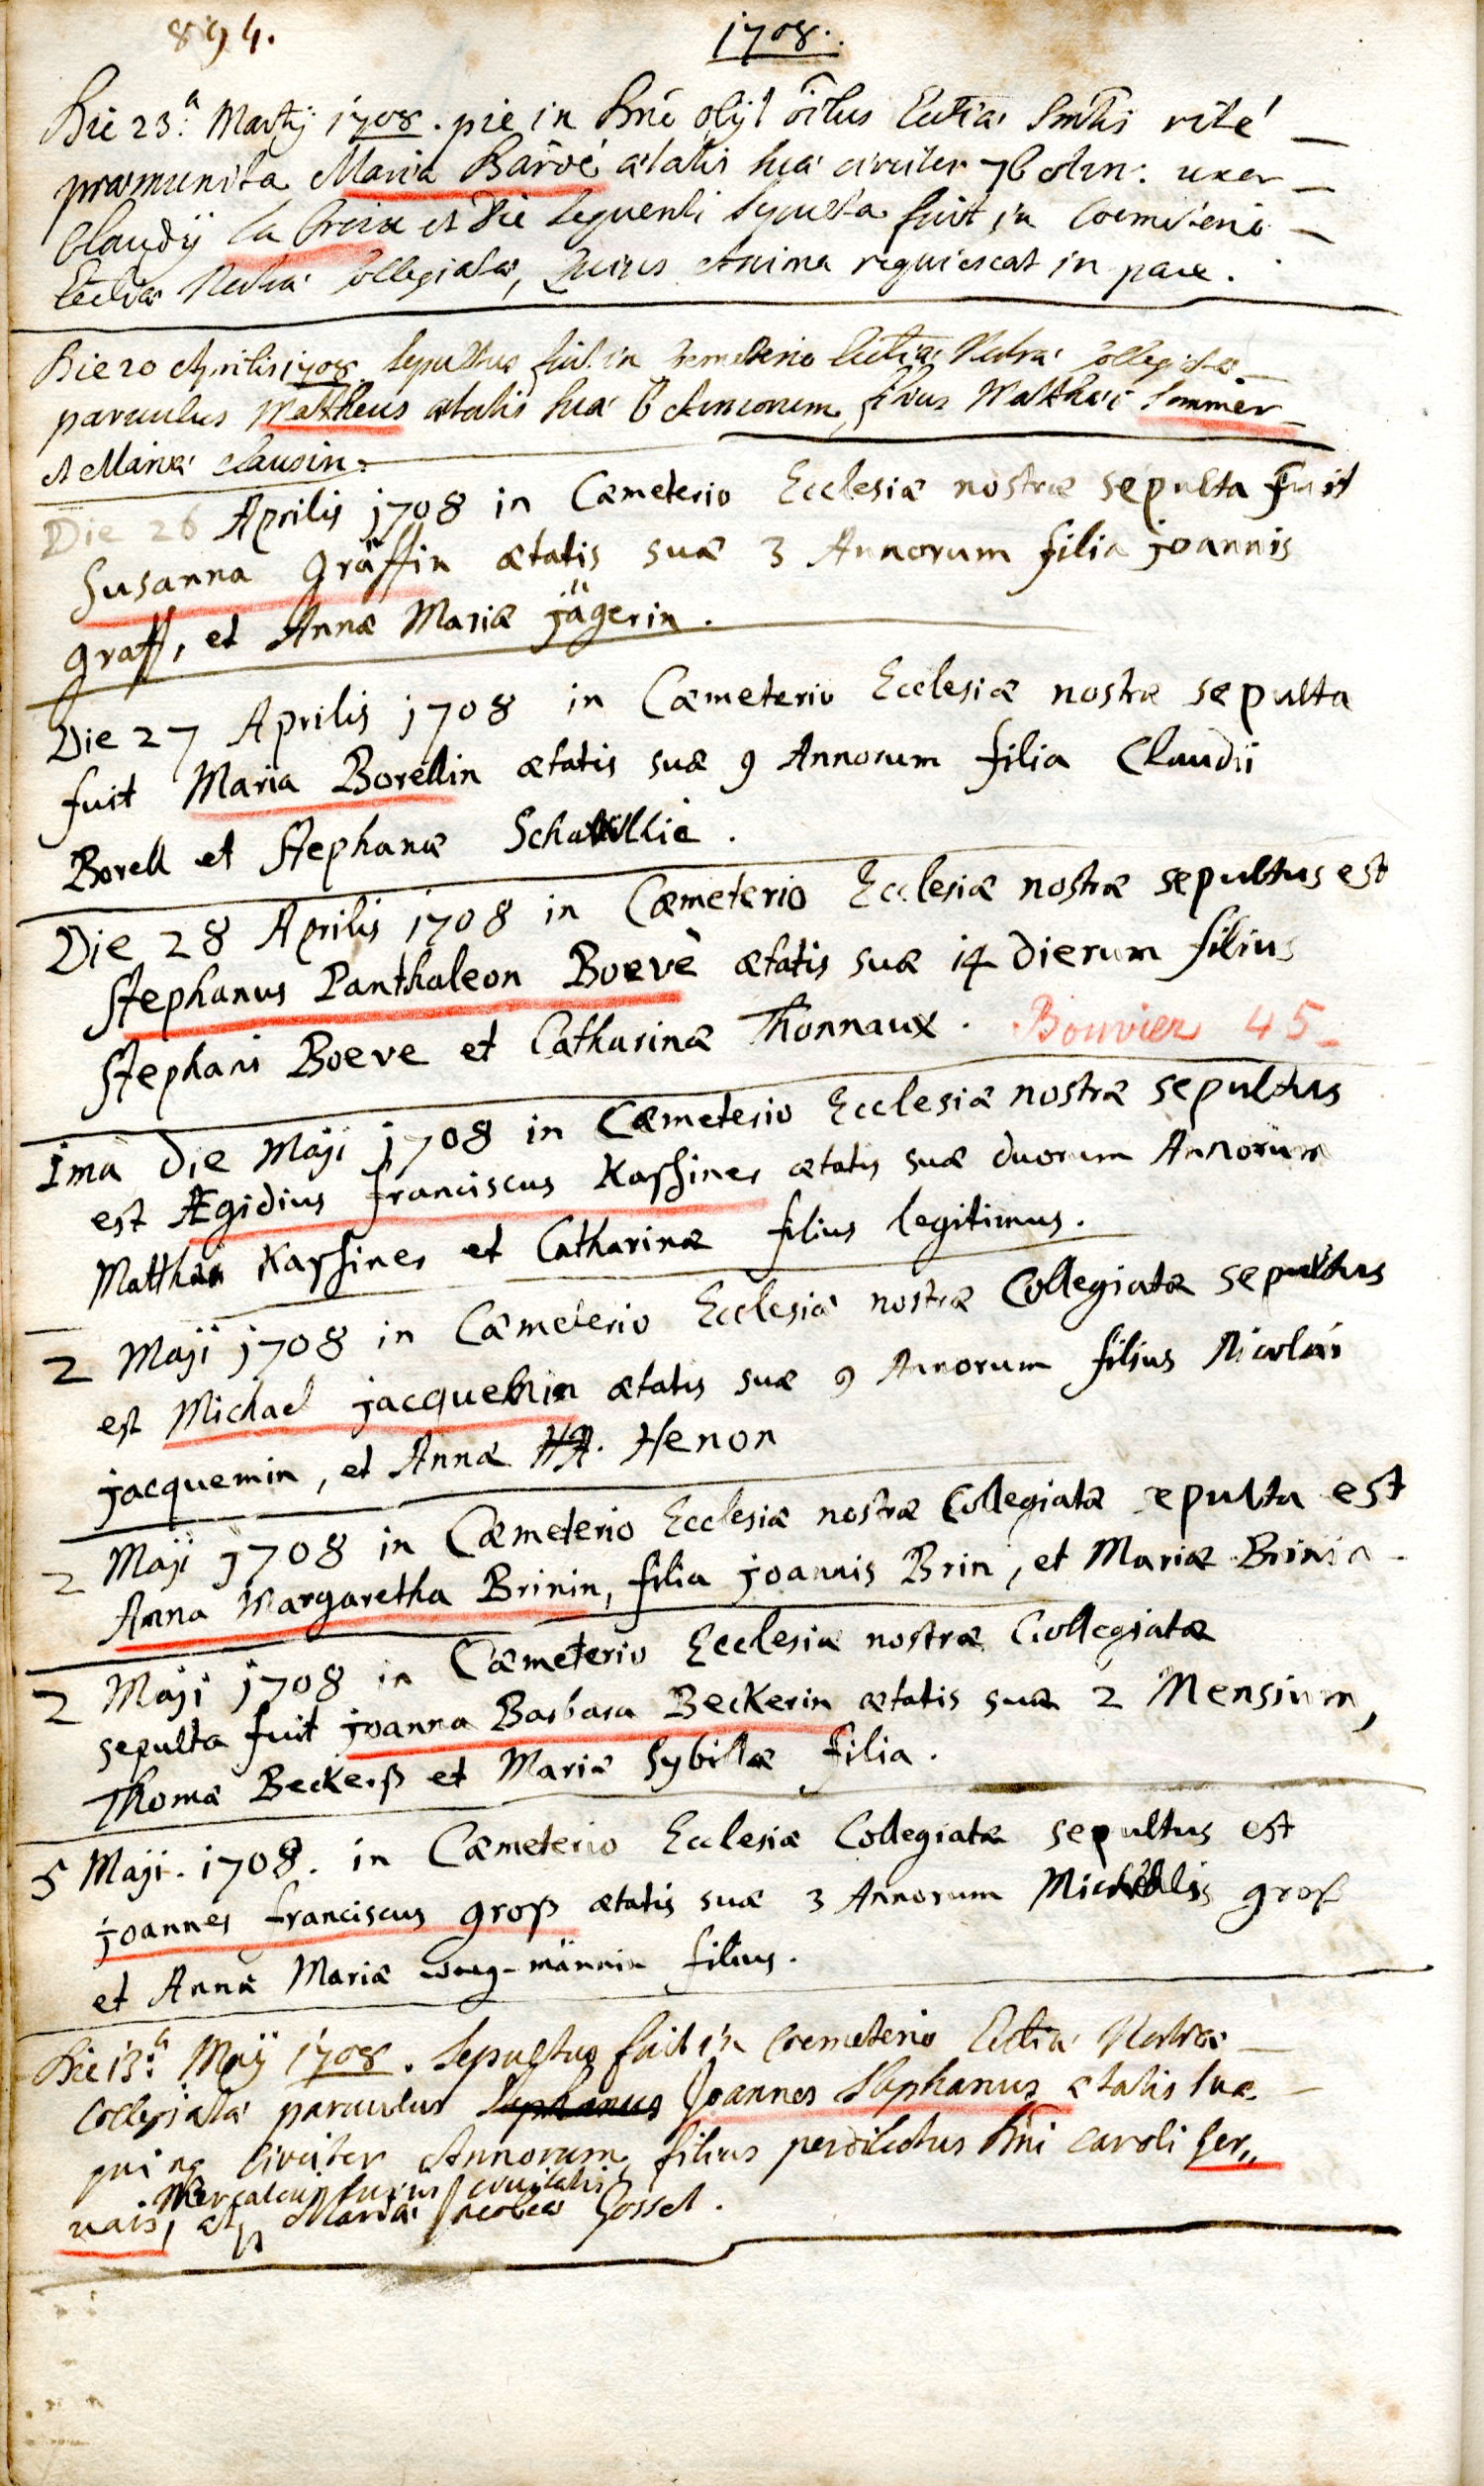 894.
1708.
Die 23.a Martij 1708. pie in Dnō obijt ōibus Ecclīa Smtis rité
præmunita Maria Barvé ætatis suæ circiter 76 Ann: uxor
Claudij La Croix et die sequenti sepulta fuit in Coemiterio
Ecclīæ Nostræ Collegiatæ, Cuius Anima requiescat in pace.
Die 20 Aprilis 1708 sepultus fuit in Cemeterio Ecclīæ Nostræ Collegiatæ
parvulus Mattheus ætatis suæ 6 Annorum, filius Matthæi Sommer
et Mariæ Clausin.
Die 26 Aprilis 1708 in Cæmeterio Ecclesiæ nostræ sepulta fuit
Susanna Gräffin ætatis suæ 3 Annorum filia joannis
graff, et Annæ Mariæ jägerin.
Die 27 Aprilis 1708 in Cæmeterio Ecclesiæ nostræ sepulta
fuit Maria Borellin ætatis suæ 9 Annorum filia Claudii
Borell et Stephanæ
Die 28 Aprilis 1708 in Cæmeterio Ecclesiæ nostræ sepultus est
Stephanus Panthaleon Boevè ætatis suæ 14 Dierum filius
Stephani Boeve et Catharinæ Thonnaux. Bouvier 45
Ima Die Maji 1708 in Cæmeterio Ecclesiæ nostræ sepultus
est Ægidius franciscus Kaysines ætatis suæ duorum Annorum
Matthæi Kaysines et Catharinæ filius legitimus.
2 Maji 1708 in Cæmeterio Ecclesiæ nostræ Collegiatæ sepultus
est Michael jacquemin ætatis suæ 9 Annorum filius Nicolai
jacquemin, et Annæ Henon
2 Maji 1708 in Cæmeterio Ecclesiæ nostræ Collegiatæ sepulta est
Anna Margaretha Brinin, filia joannis Brin, et Mariæ Brinin
2 Maji 1708 in Cæmeterio Ecclesiæ nostræ Collegiatæ
sepulta fuit joanna Barbara Beckerin ætatis suæ 2 Mensium,
Thomæ Beckerß et Mariæ Sybillæ filia.
5 Maji. 1708. in Cæmeterio Ecclesiæ Collegiatæ sepultus est
joannes franciscus groß ætatis suæ 3 Annorum Michælis groß
et Annæ Mariæ filius.
Die 13.a Maij 1708. sepultus fuit in Cœmeterio Ecclīæ Nostræ
Collegiatæ parvulus Stephanus Joannes Stephanus ætatis suæ
quinq circiter Annorum, filius perdilectus Dni Caroli Ger,,
Mercatoris huius civitatis
vais, et Mariæ Jacobeæ Gosset.